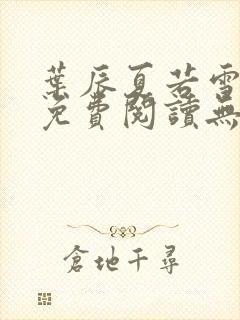 葉辰夏若雪
免費閱讀無
倉地千尋